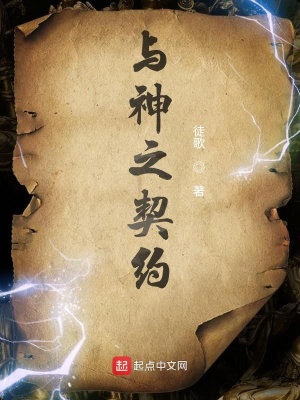 与神之契约
徒歌 ◎ 著
起 起点中文网